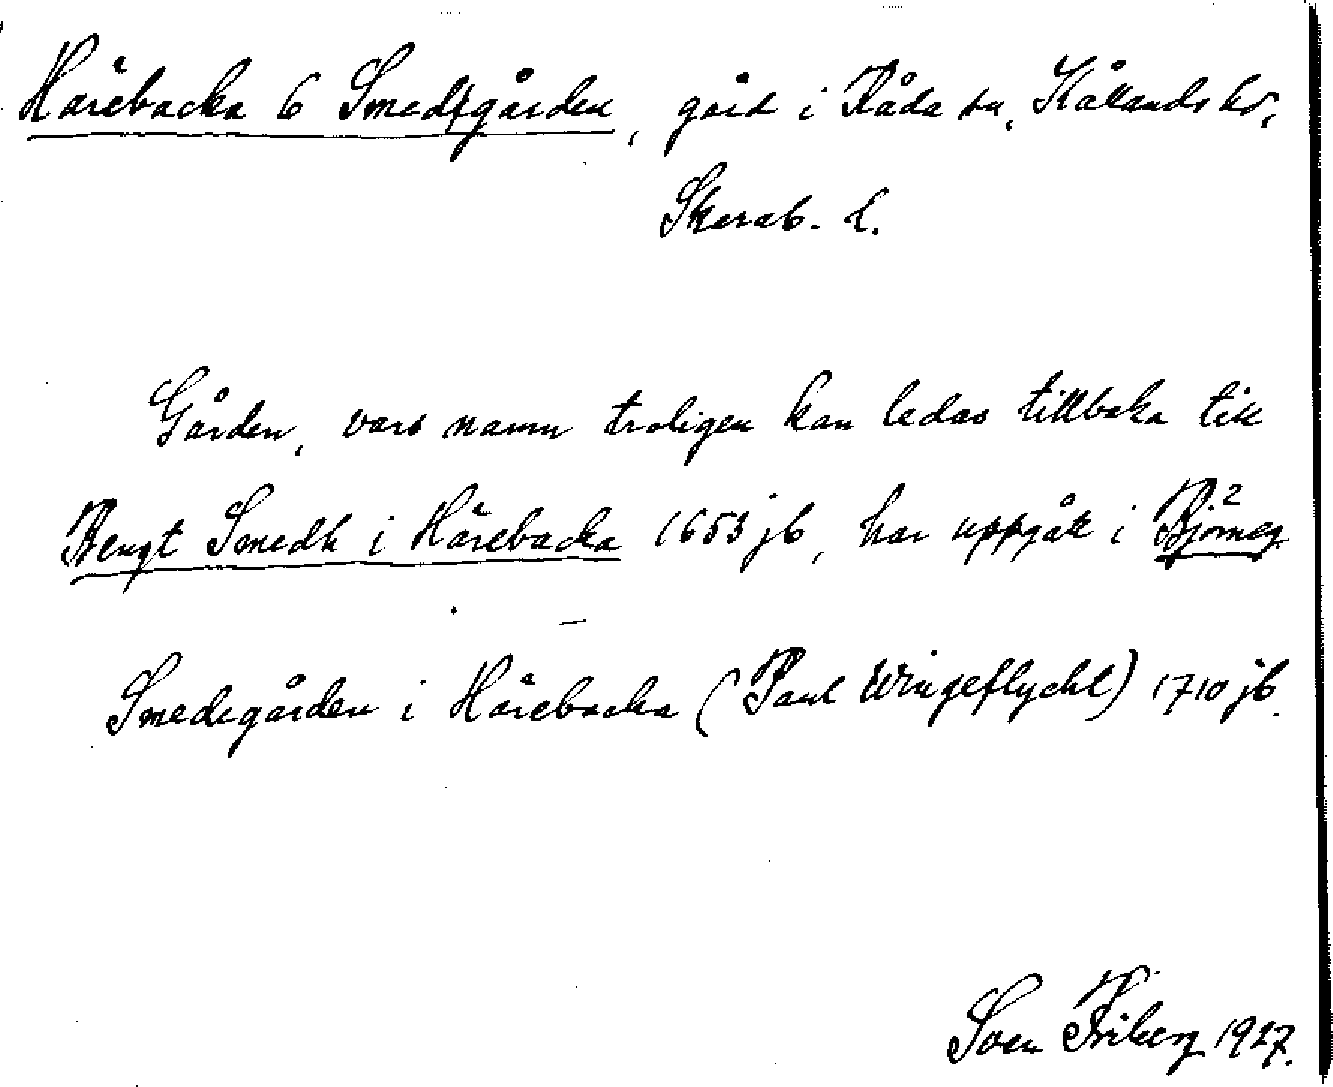 Hårebacka 6 Smedsgården, gård i Råda sn, Kållands hd,
Skarab. l.
Gården, vars namn troligen kan ledas tillbaka till
Bengt Smedh i Hårebacka 1653 jb, har uppgått i
Smedsgården i Hårebacka (Paul Wingeflycht) 1710 jb.
Sven Friberg 1927.